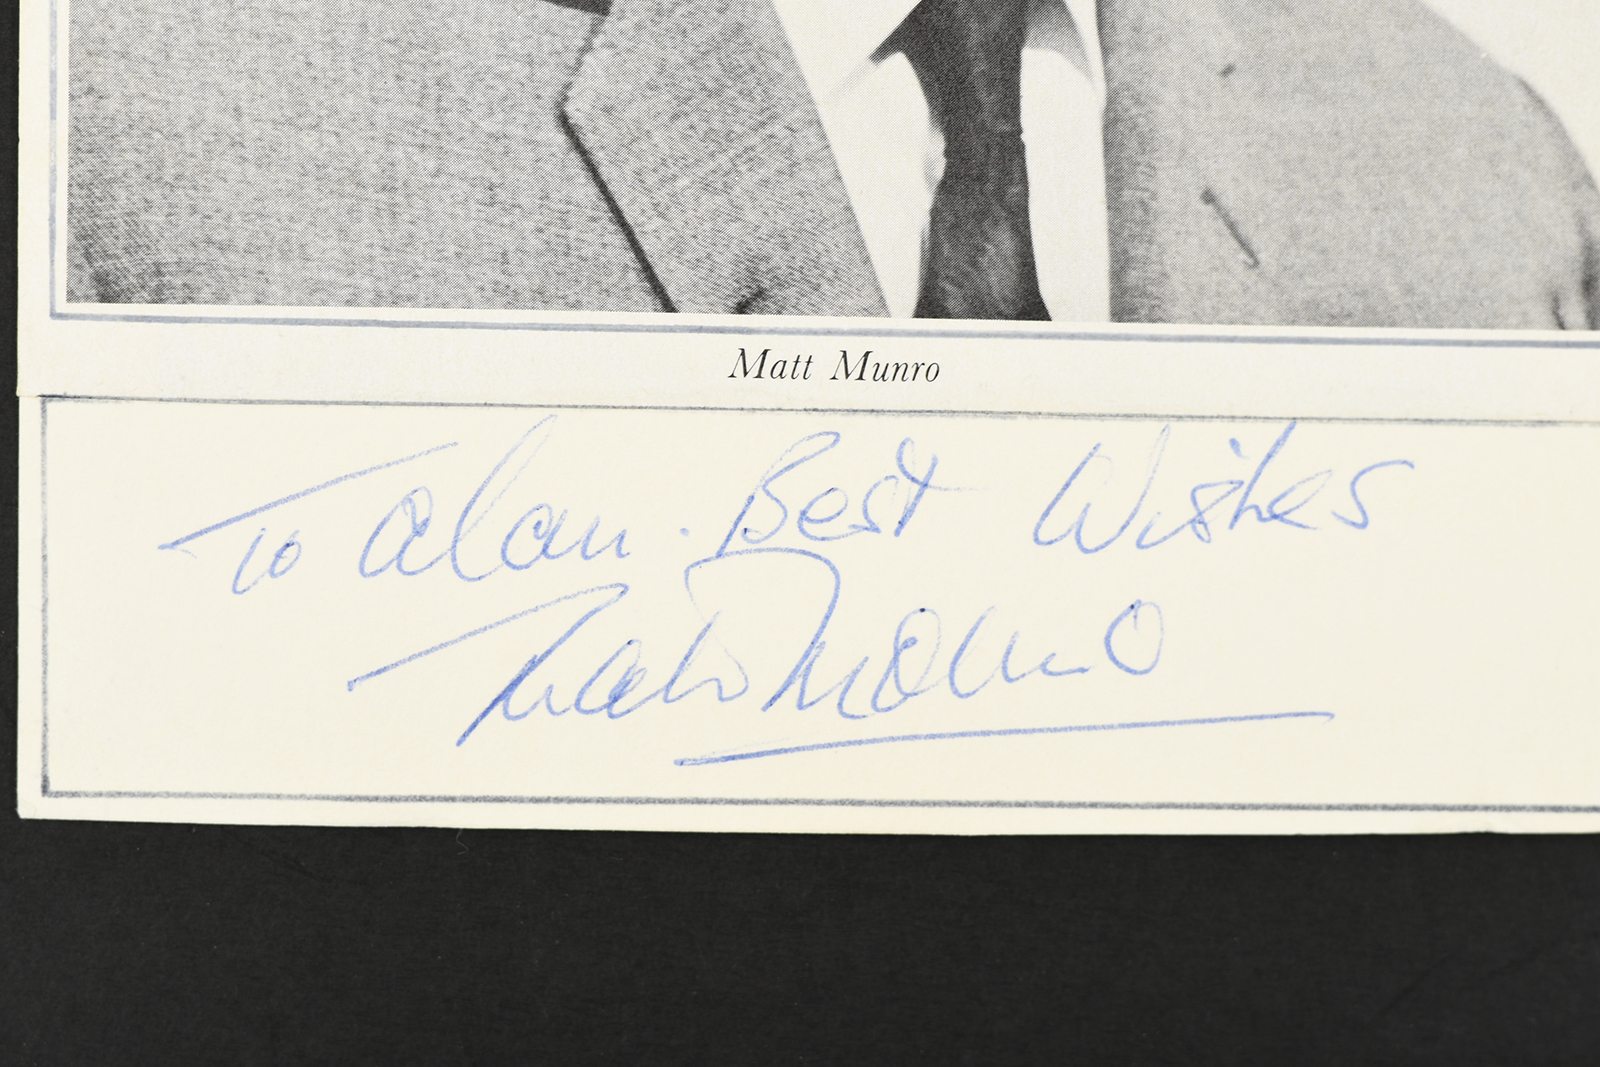 Matt Munro
To Alan. Best Wishes
Matt Monro